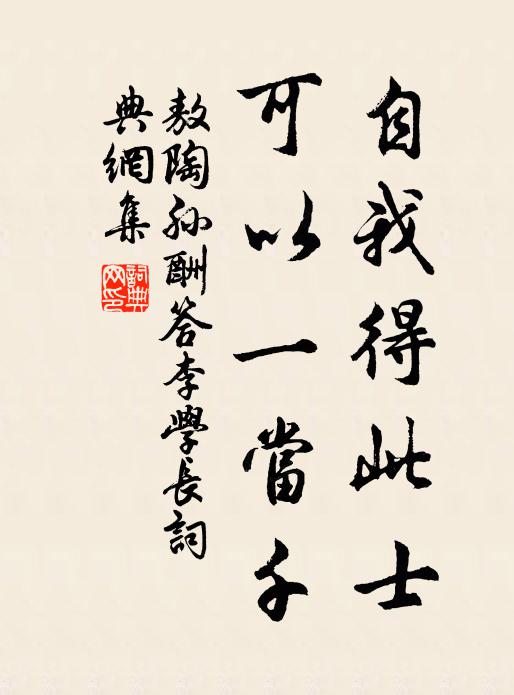 自我得此士
可以一當千
敖陶孫酬答李學長詞
典網集
詞典
网印